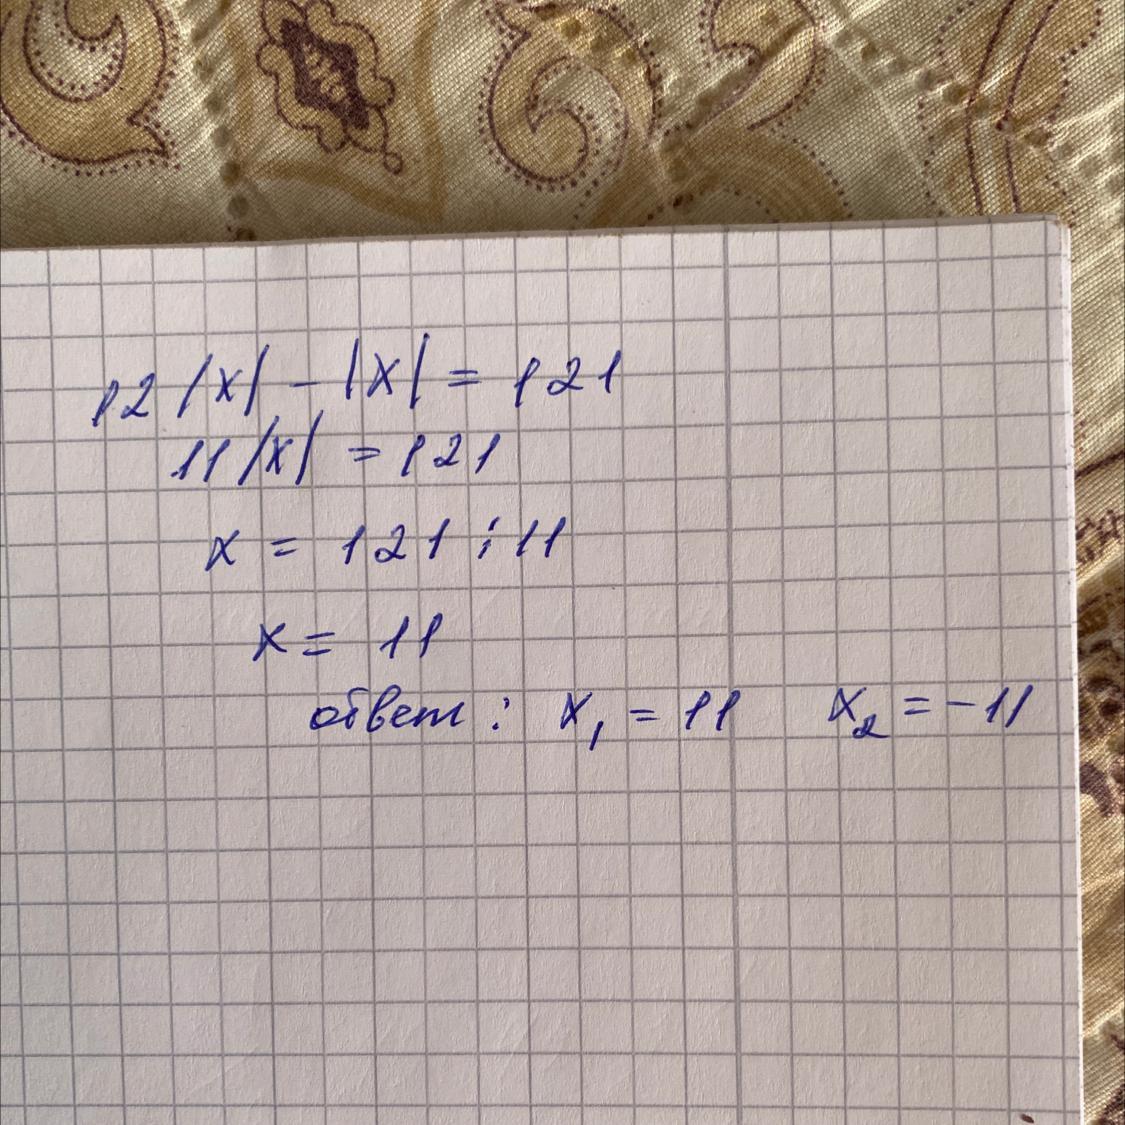 12 |x| - |x| = 121
11 |x| = 121
x = 121 : 11
x = 11
ответ : x₁ = 11 x₂ = -11